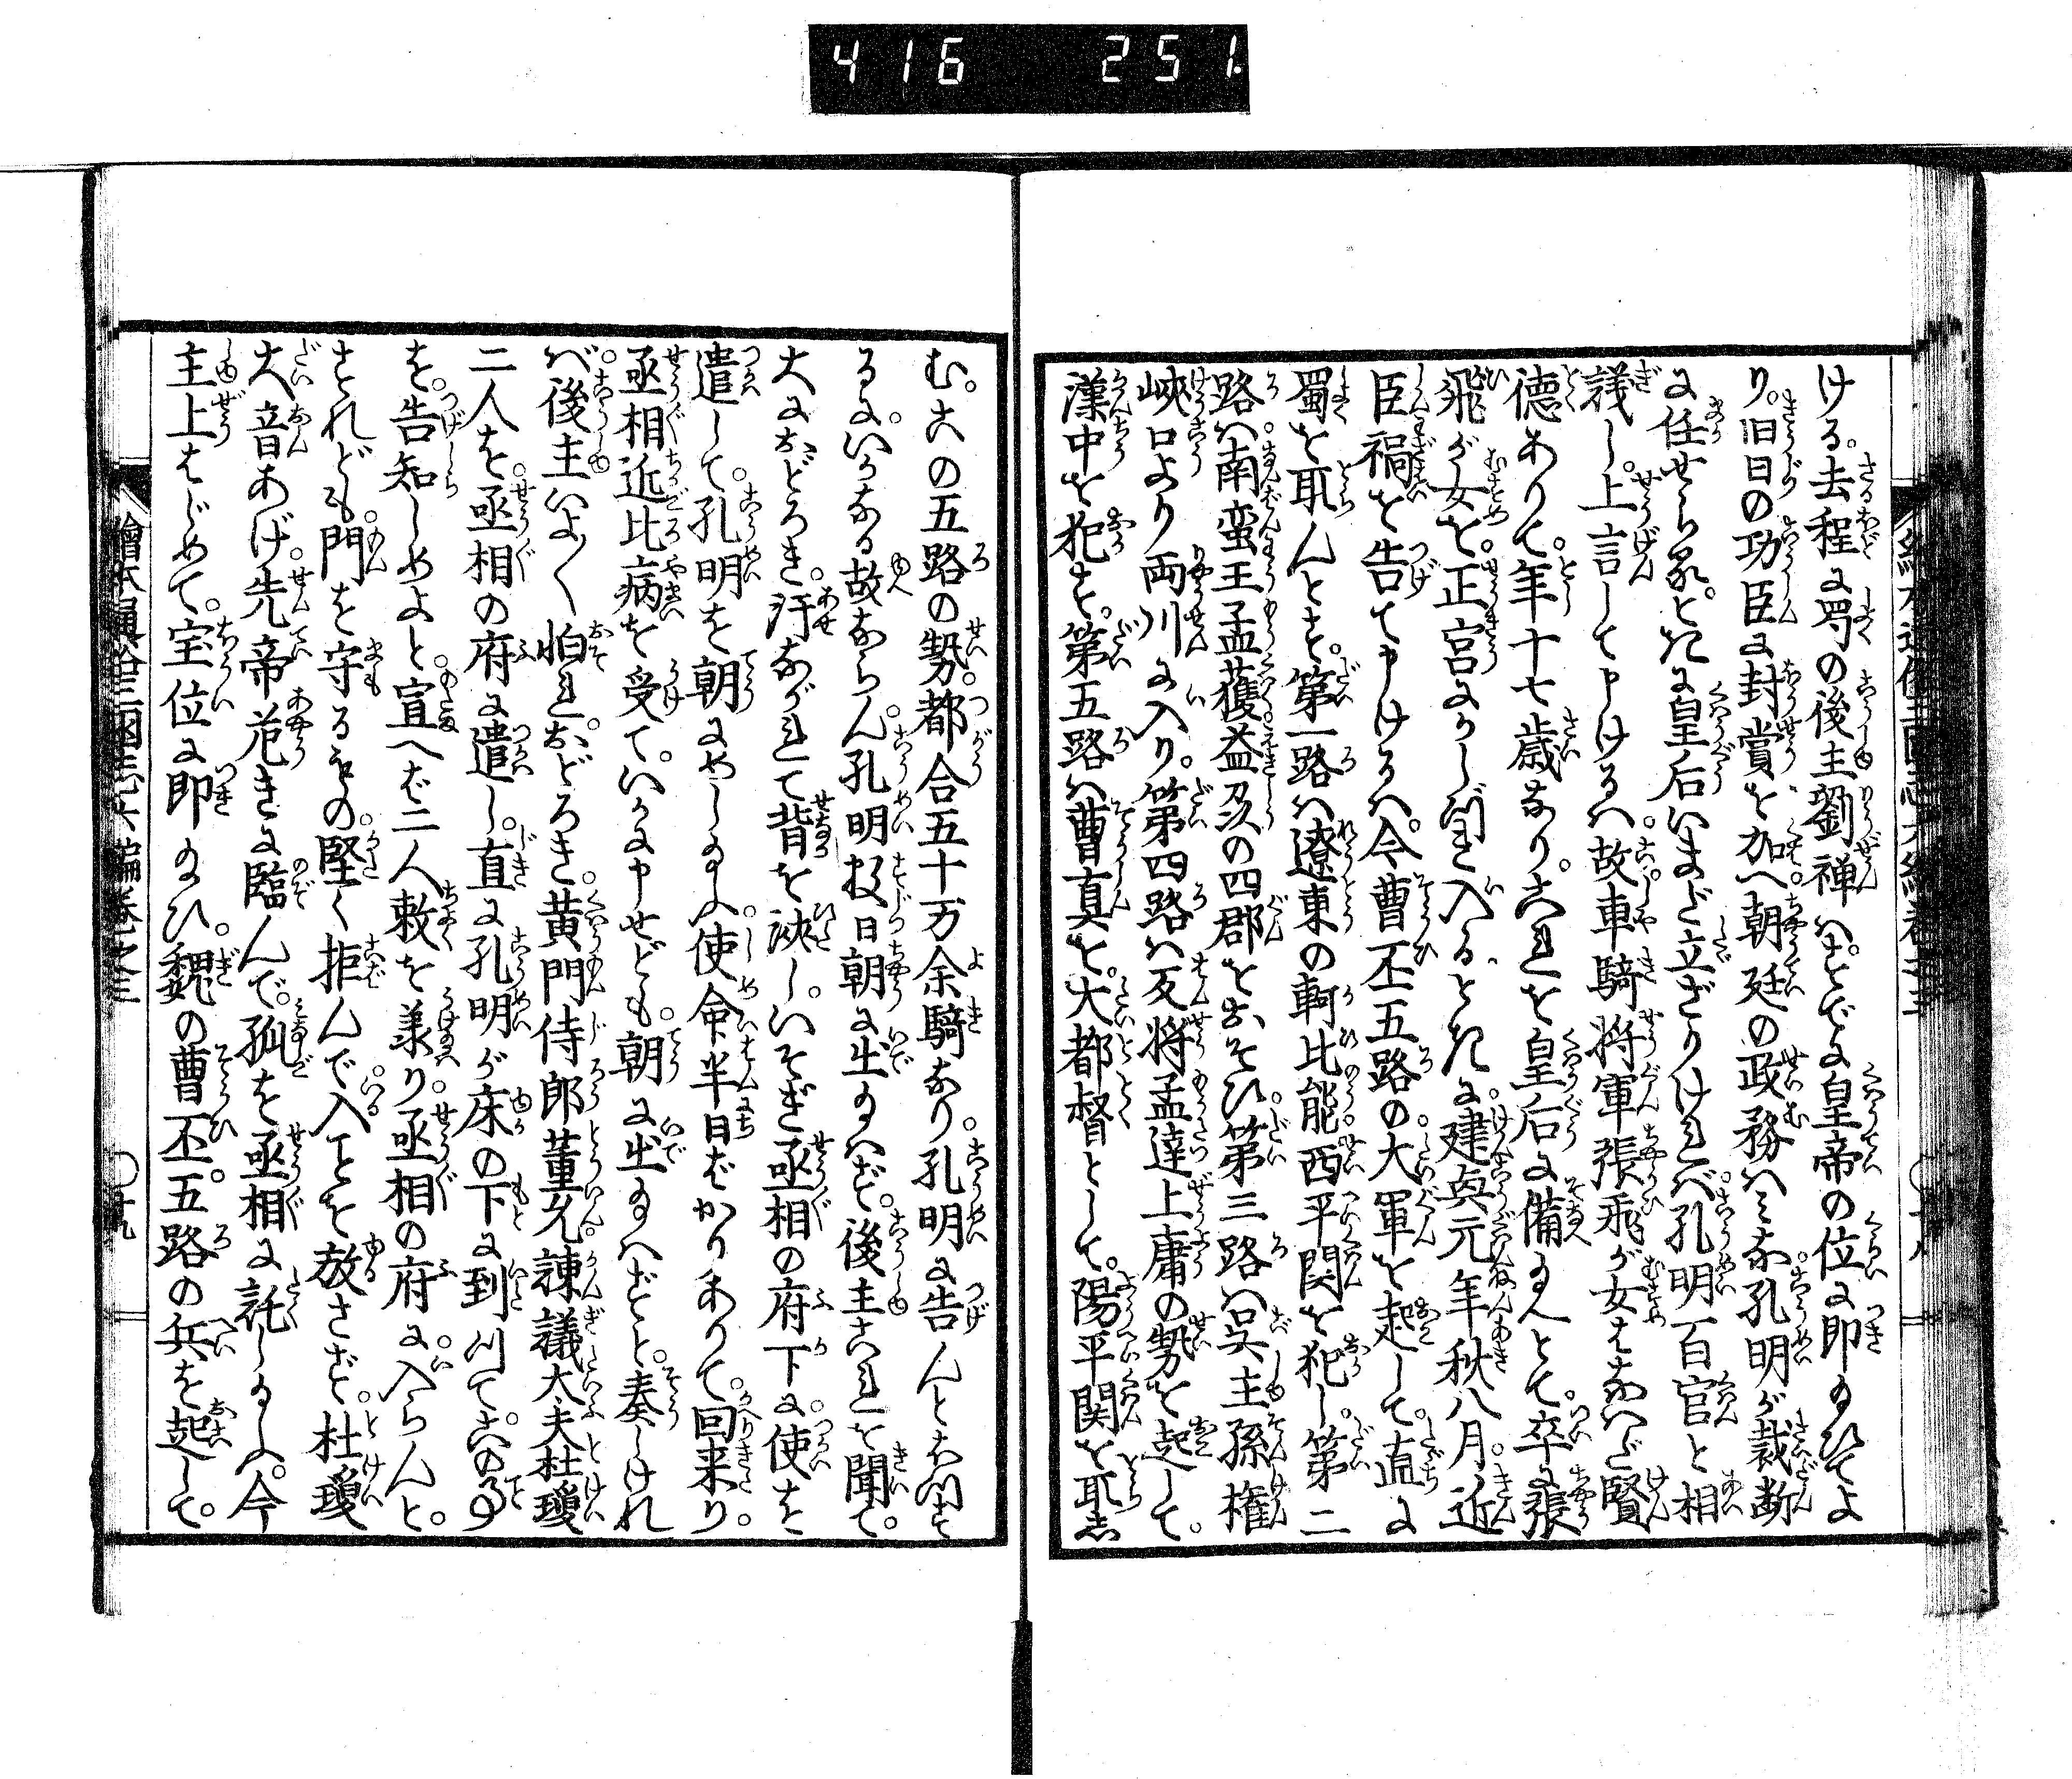 416 251
ける。去程に蜀の後主劉禅は。すでに皇帝の位に即給ひてよ
り。旧日の功臣に封賞を加へ。朝廷の政務はみな孔明が裁断
に任せらる。ときに皇后いまだ立ざりければ。孔明百官と相
議し。上言して申けるは。故車騎将軍張飛が女はなはだ賢
徳ありて。年十七歳なり。これを皇后に備給へとて。卒に張
飛が女を。正宮にかしづき入るとき。に建興元年秋八月。近
臣禍を告て申けるは。今曹丕五路の大軍を起して。直に
蜀を取んとす。第一路は遼東の軻比能。西平関を犯し。第二
路は。南蛮王孟獲。益州の四郡をおそひ。第三路は呉主孫権
峡口より両川に入り。第四路は反将孟達。上庸の勢を起して。
漢中を犯す。第五路は曹真を。大都督として。陽平関を取し
む。この五路の勢。都合五十万余騎なり。孔明に告んとおもて
るに。いかなる故ならん。孔明数日朝に出給はず。後主これを聞て。
大におどろき。汗ながれて背を浹し。いそぎ丞相の府下に。使を
遣して。孔明を朝にめし給ふ。使命半日ばかりありて。回来り。
丞相近比病を受て。いかに申せども。朝に出給はずと。奏しけれ
ば。後主いよ〱怕れ。おどろき。黄門侍郎董允。諫議大夫杜瓊
二人を。丞相の府に遣し。直に孔明が床の下に到りて。この事
を。告知しめよと。宣へば二人敕を承り。丞相の府に。入らんと。
すれども。門を守るもの。堅く拒んで。入ことを放さず。杜瓊
大音あげ。先帝危きに臨んで。孤を丞相に託し給ふ。今
主上はじめて。宝位に即給ひ。魏の曹丕。五路の兵を起して。
繪本通俗三國志六編巻之三
〇十九